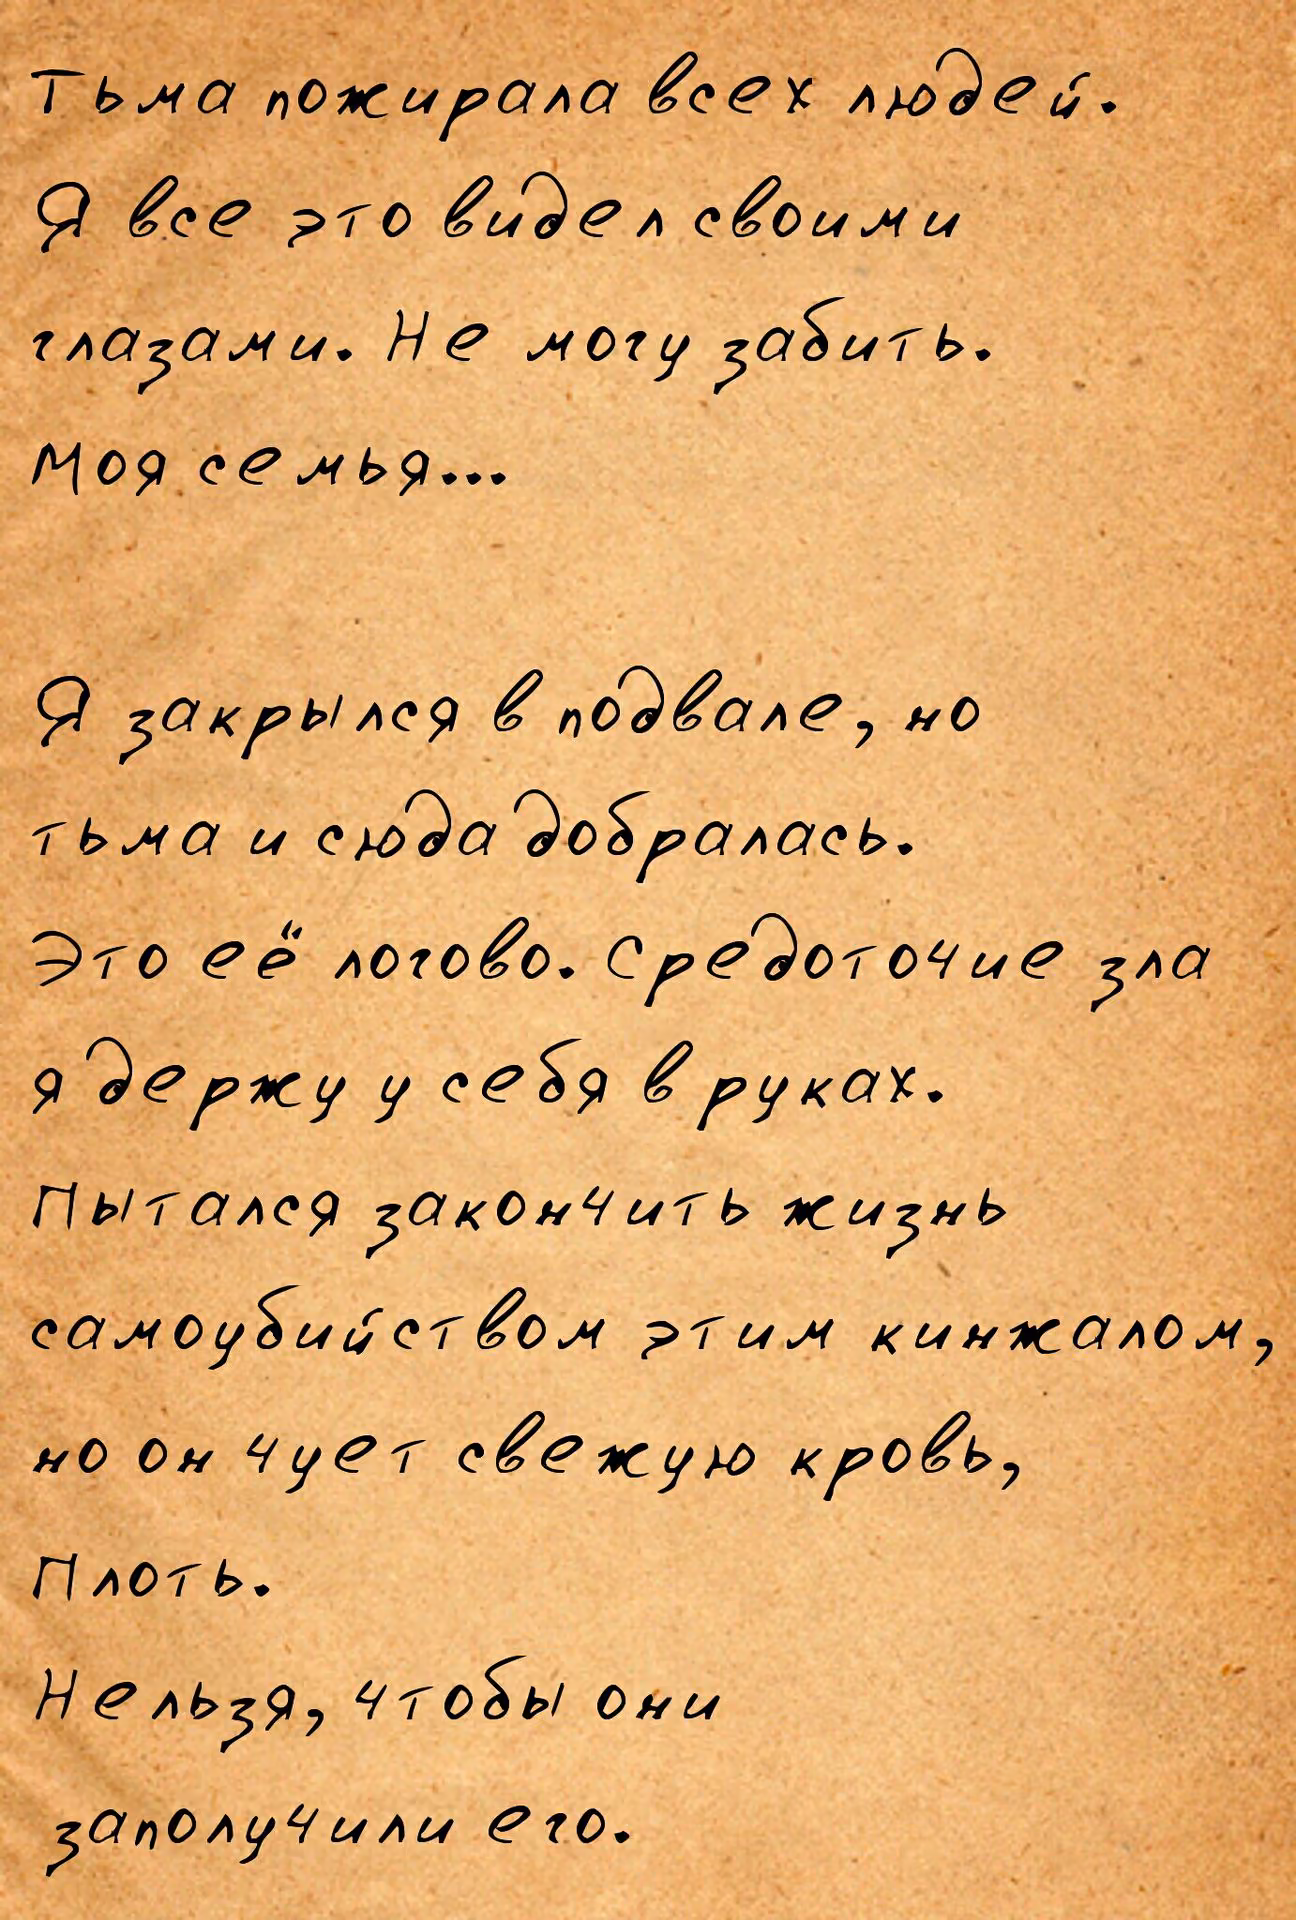 Тьма пожирала всех людей.
Я все это видел своими
глазами. Не могу забить.
Моя семья...
Я закрылся в подвале, но
тьма и сюда добралась.
Это её логово. Средоточие зла
я держу у себя в руках.
Пытался закончить жизнь
самоубийством этим кинжалом,
но он чует свежую кровь,
Плоть.
Нельзя, чтобы они
заполучили его.